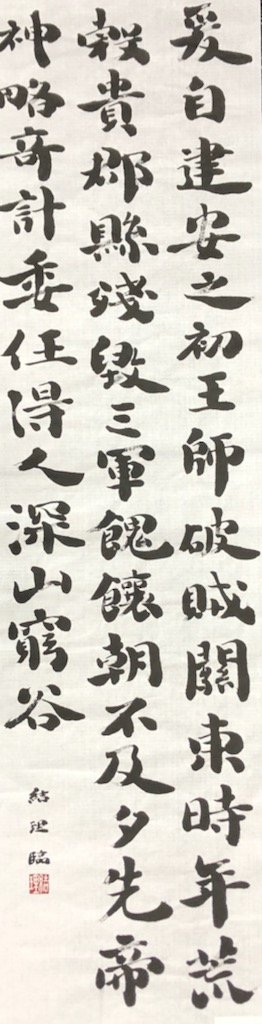 爰自建安之初王師破賊關東時年荒
穀貴郡縣殘毀三軍餽饟朝不及夕先帝
神略奇計委任得人深山窮谷
臨